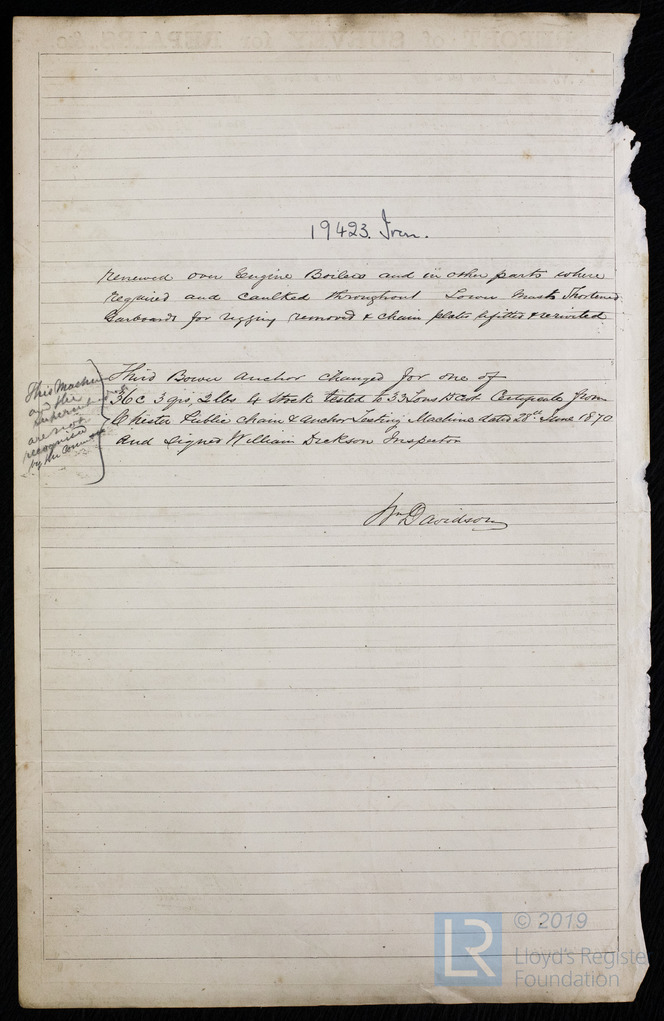 REPORT of SURVEY for REPAIRS, &c
19423. Iron.
renewed over Engine Boilers and in other parts where
required and caulked throughout Lower Masts Shortened
Garboards for rigging removed & chain plates refitted & reriveted
Third Bower Anchor changed for one of
36c 3 qrs, 2 lbs & Stock tested to 33 Tons Certificate from
Chester Public chain & Anchor Testing Machine dated 28th June 1870
and Signed William Dickson Inspector
This Machine
and the
Superintendent
are not
recognised
by the Committee
Wm Davidson
LR
© 2019
Lloyd's Registe
Foundation